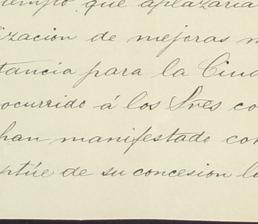 tiempo que aplazaria
ización de mejoras m
tancia para la Ciud
ocurrido á los Sres co
han manifestado con
ptúe de su concesion la